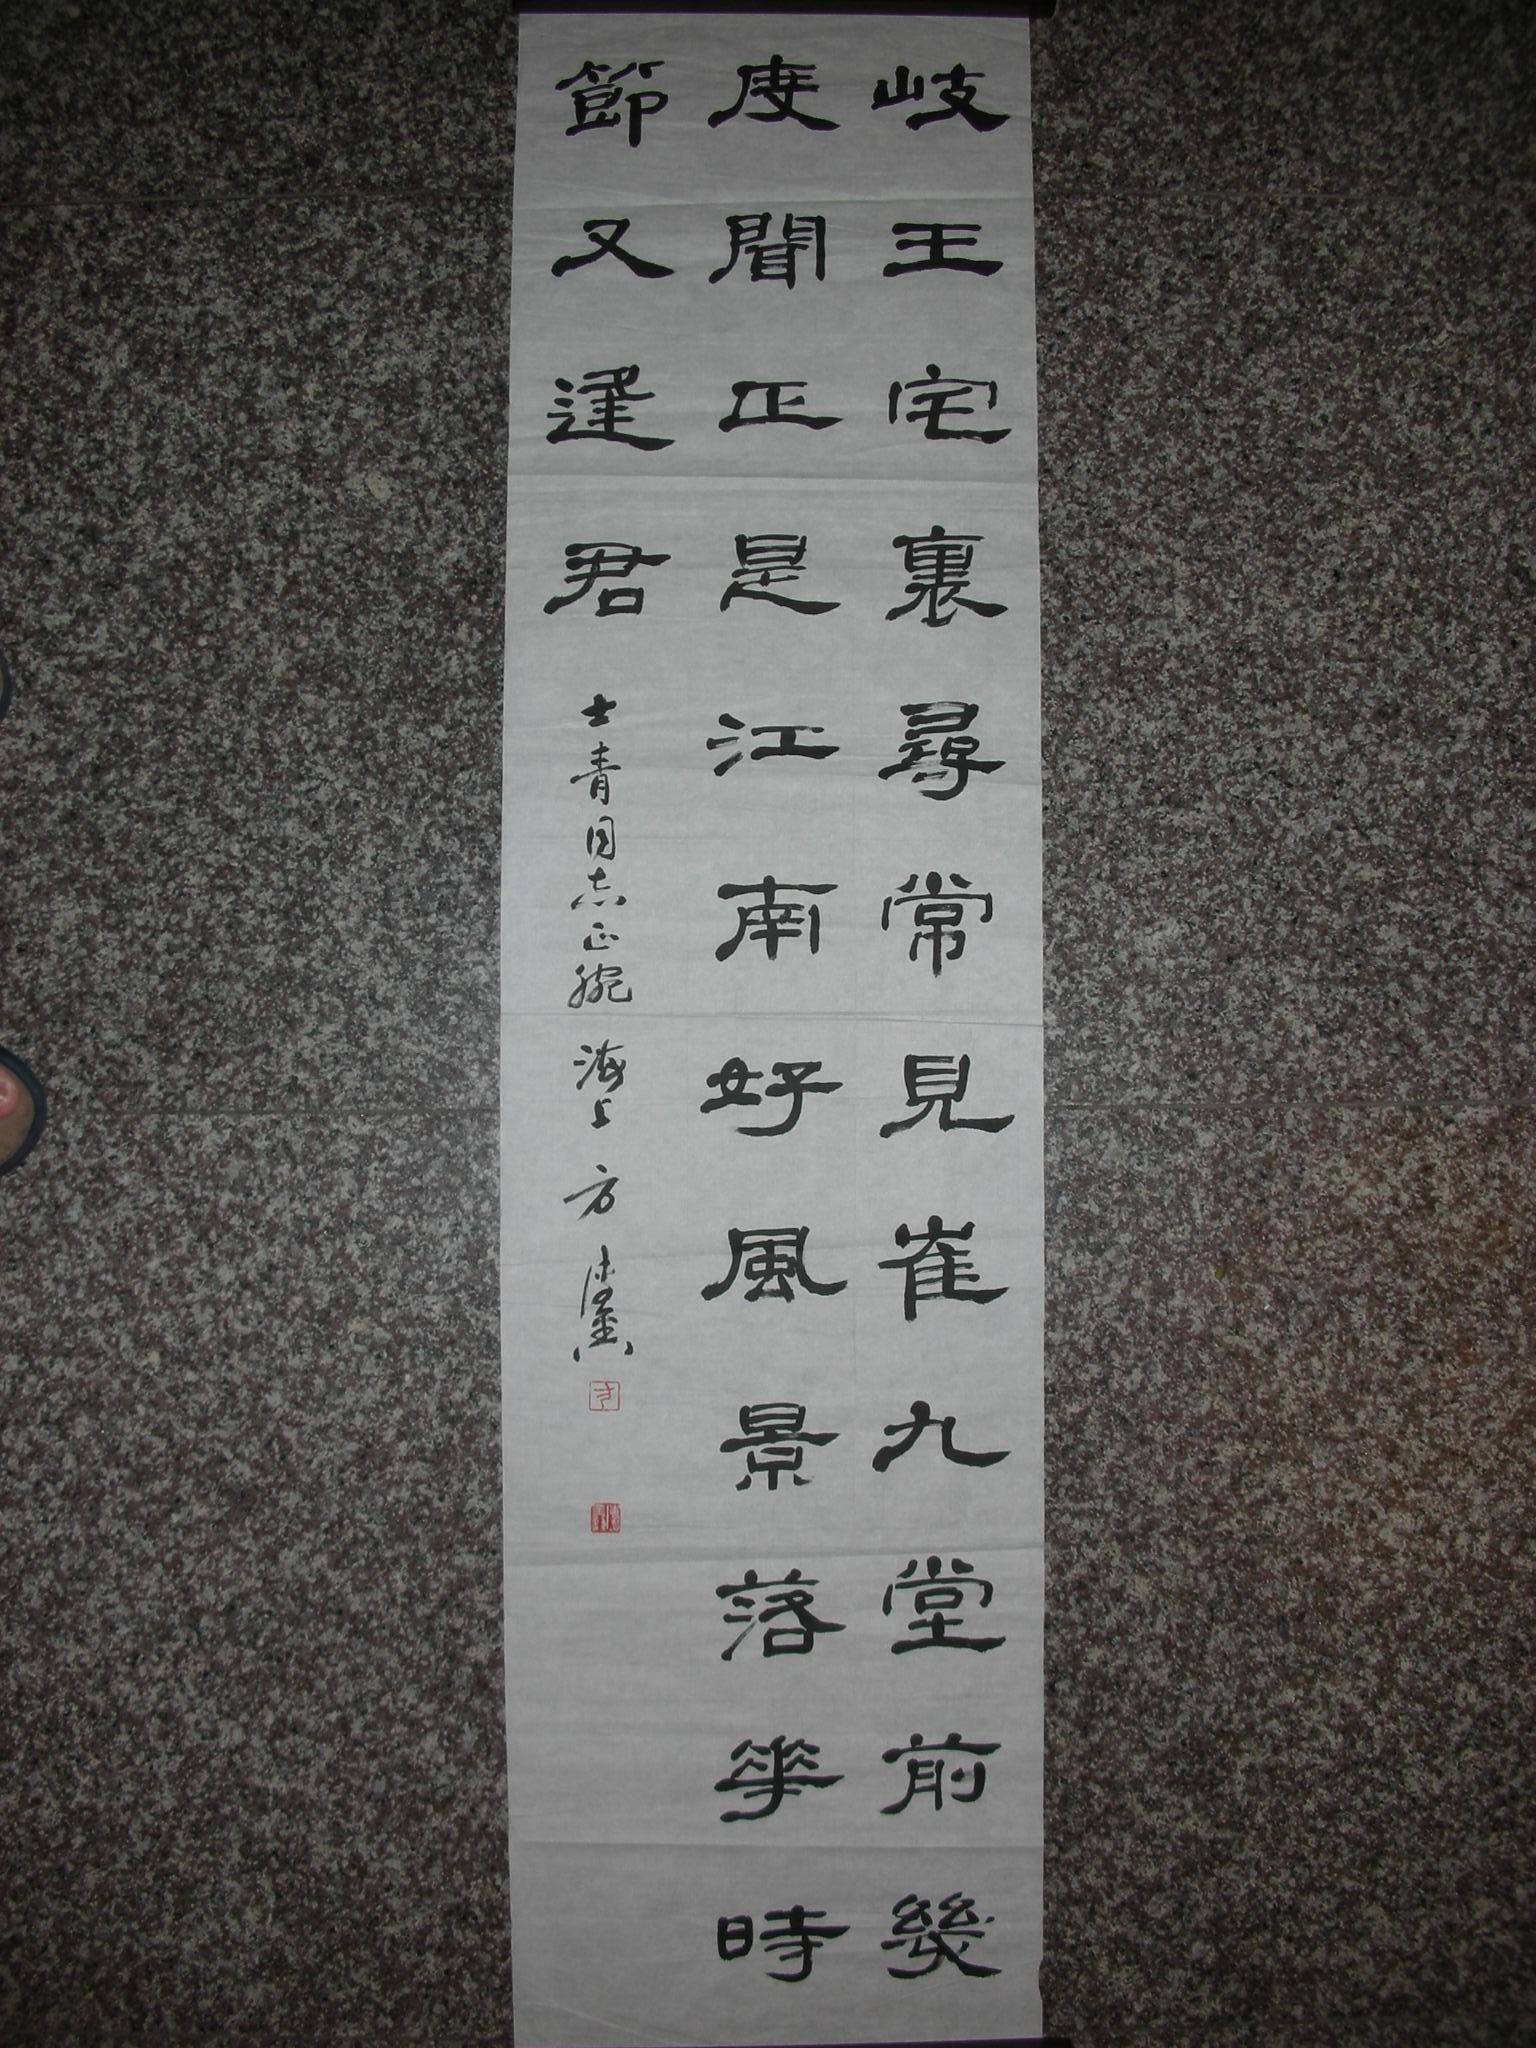 岐王宅裏尋常見崔九堂前幾
度聞正是江南好風景落華時
節又逢君
士青同志正腕 海上 方